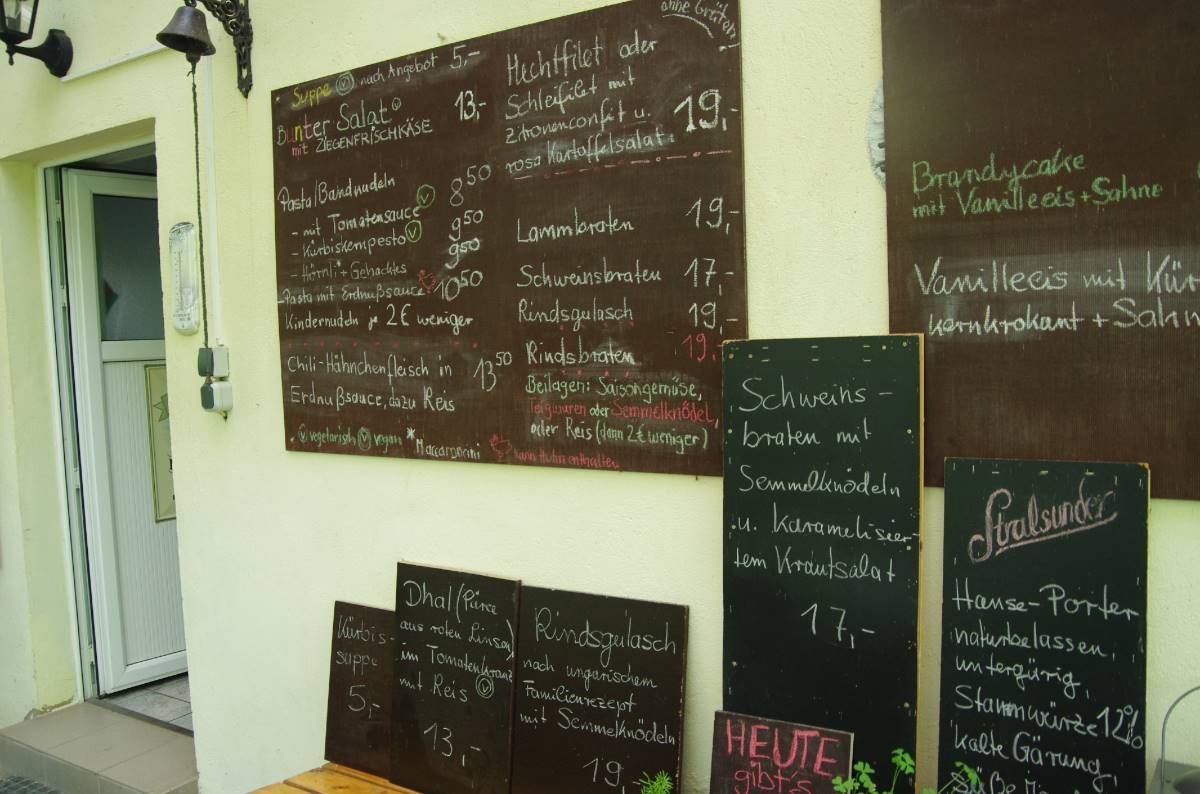 Suppe Ⓥ nach Angebot 5,-
Bunter Salat
mit ZIEGENFRISCHKÄSE 13,-
Pasta/Bandnudeln
- mit Tomatensauce Ⓥ 8 50
- Kürbiskernpesto Ⓥ 9 50
- Hörnli + Gehacktes 9 50
- Pasta mit Erdnußsauce 10 50
Kindernudeln je 2€ weniger
Chili-Hähnchenfleisch in
Erdnußsauce, dazu Reis 13 50
Ⓥ vegetarisch Ⓥ vegan * Maccaroncini kann Huhn enthalten
ohne Gräten!
Hechtfilet oder
Schleifilet mit
Zitronenconfit u.
rosa Kartoffelsalat 19,-
Lammbraten 19,-
Schweinsbraten 17,-
Rindsgulasch 19,-
Rindsbraten 19,-
Beilagen: Saisongemüse,
Teigwaren oder Semmelknödel,
oder Reis (dann 2€ weniger)
Brandycake
mit Vanilleeis + Sahne
Vanilleeis mit Kür
kernkrokant + Sahn
Kürbis-
suppe
5,-
Dhal (Püree
aus roten Linsen)
im Tomatenkranz
mit Reis Ⓥ
13,-
Rindsgulasch
nach ungarischem
Familienrezept
mit Semmelknödeln
19,
Schweins-
braten mit
Semmelknödeln
u. karamelisier-
tem Krautsalat
17,-
HEUTE
gibt's
Stralsunder
Hanse-Porter
naturbelassen,
untergärig,
Stammwürze 12%
kalte Gärung,